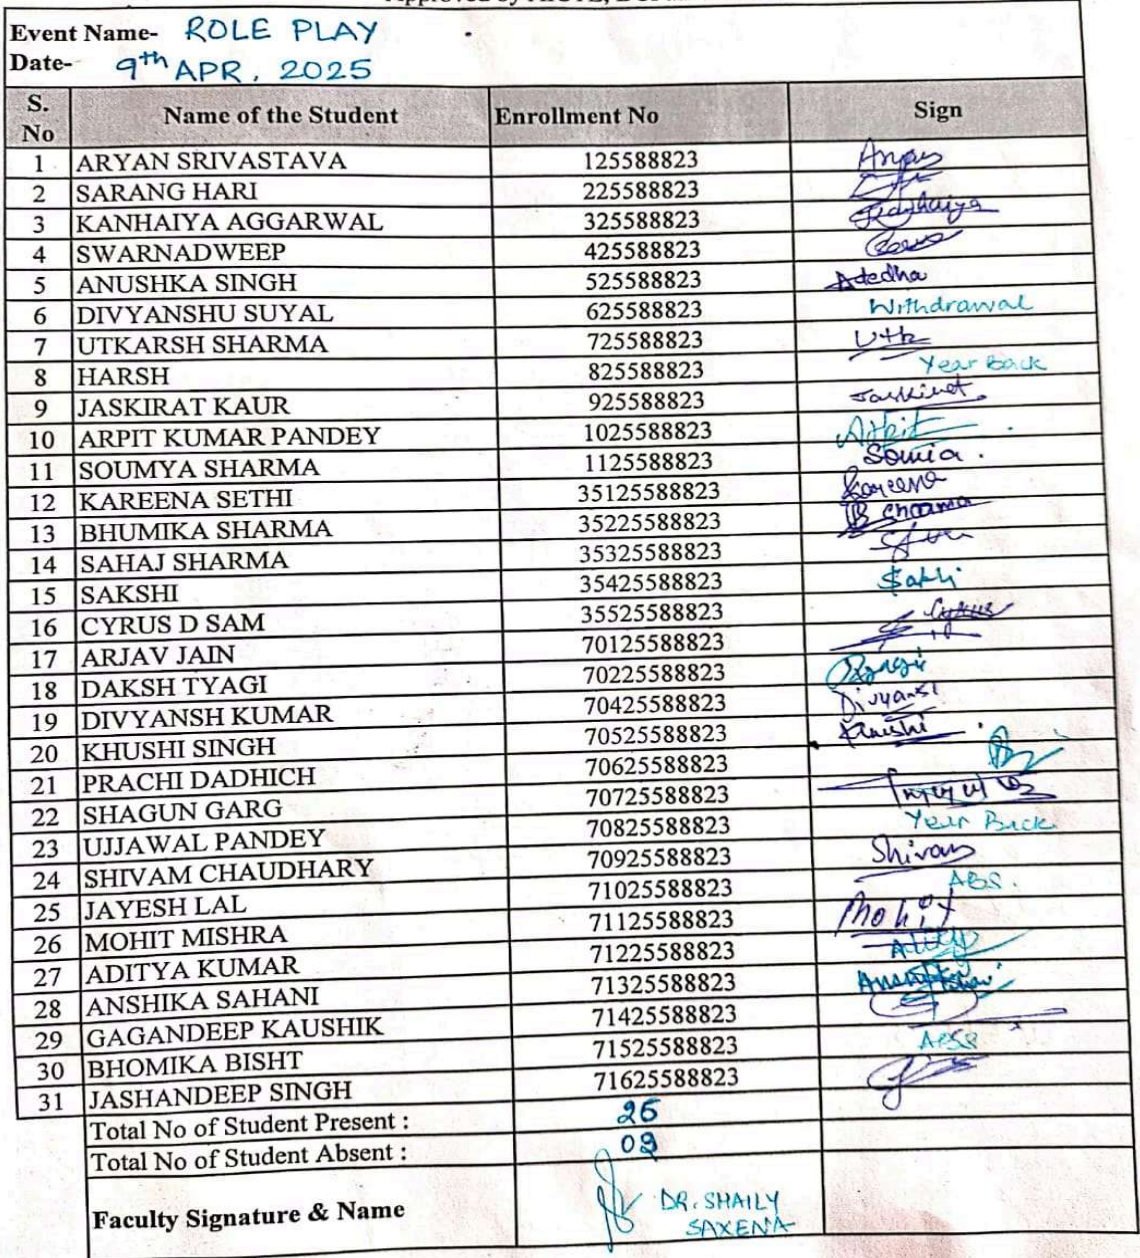 Event Name- ROLE PLAY
Date- 9th APR, 2025
S. No Name of the Student Enrollment No Sign
1 ARYAN SRIVASTAVA 125588823 Aryan
2 SARANG HARI 225588823
3 KANHAIYA AGGARWAL 325588823 Kanhaiya
4 SWARNADWEEP 425588823
5 ANUSHKA SINGH 525588823
6 DIVYANSHU SUYAL 625588823 Withdrawal
7 UTKARSH SHARMA 725588823 Utk
8 HARSH 825588823 Year Back
9 JASKIRAT KAUR 925588823 Jaskirat
10 ARPIT KUMAR PANDEY 1025588823 Arpit
11 SOUMYA SHARMA 1125588823 Somia.
12 KAREENA SETHI 35125588823 Kareena
13 BHUMIKA SHARMA 35225588823 B Sharma
14 SAHAJ SHARMA 35325588823
15 SAKSHI 35425588823 Sakhi
16 CYRUS D SAM 35525588823 Cyrus
17 ARJAV JAIN 70125588823
18 DAKSH TYAGI 70225588823
19 DIVYANSH KUMAR 70425588823 Divyansh
20 KHUSHI SINGH 70525588823 Khushi
21 PRACHI DADHICH 70625588823
22 SHAGUN GARG 70725588823
23 UJJAWAL PANDEY 70825588823 Year Back
24 SHIVAM CHAUDHARY 70925588823 Shivam
25 JAYESH LAL 71025588823 ABS.
26 MOHIT MISHRA 71125588823 Mohit
27 ADITYA KUMAR 71225588823
28 ANSHIKA SAHANI 71325588823
29 GAGANDEEP KAUSHIK 71425588823
30 BHOMIKA BISHT 71525588823
31 JASHANDEEP SINGH 71625588823
Total No of Student Present :
Total No of Student Absent :
Faculty Signature & Name DR. SHAILY
SAXENA